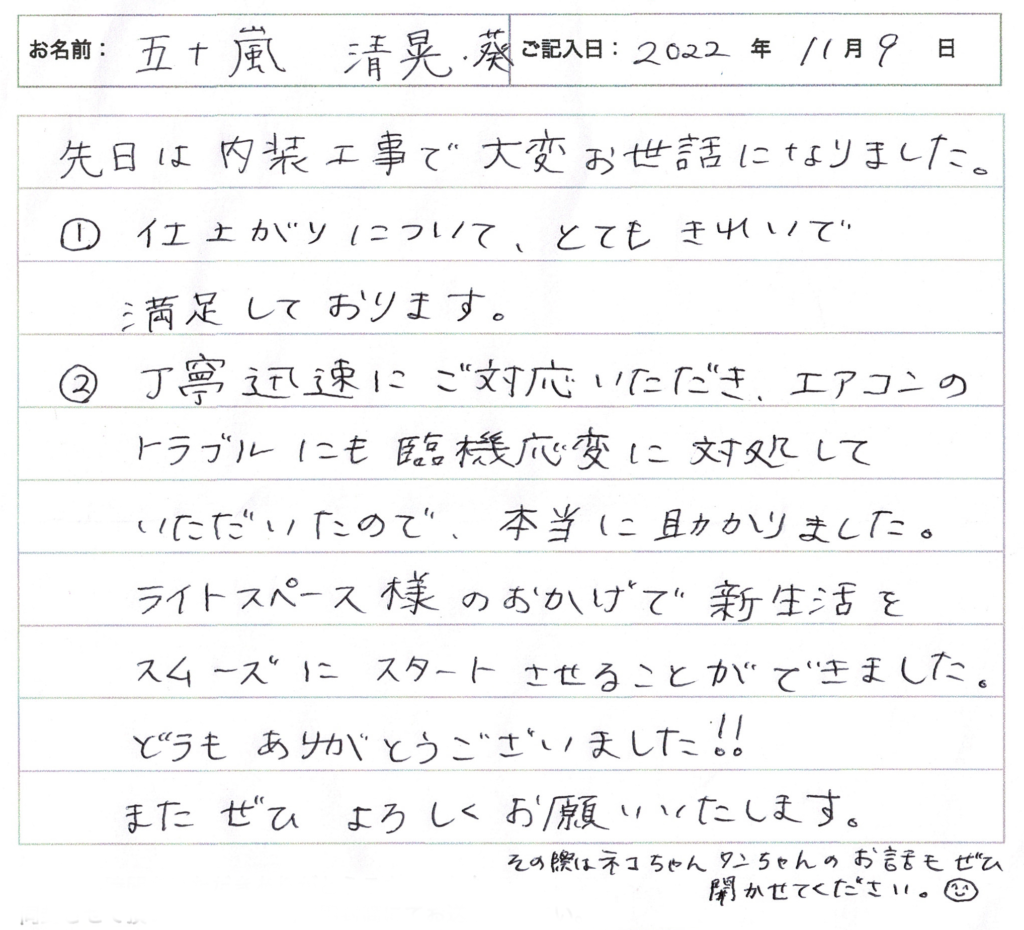 お名前： 五十嵐 清晃・葵 ご記入日： 2022 年 11月 9 日
先日は 内装工事で 大変お世話になりました。
① 仕上がりについて、とても きれいで
満足しております。
② 丁寧迅速に ご対応いただき、エアコンの
トラブルにも臨機応変に対処して
いただいたので、本当に助かりました。
ライトスペース様のおかげで新生活を
スムーズに スタートさせることができました。
どうも ありがとうございました!!
また ぜひ よろしくお願いいたします。
その際はネコちゃん ワンちゃんの お話も ぜひ
聞かせてください。